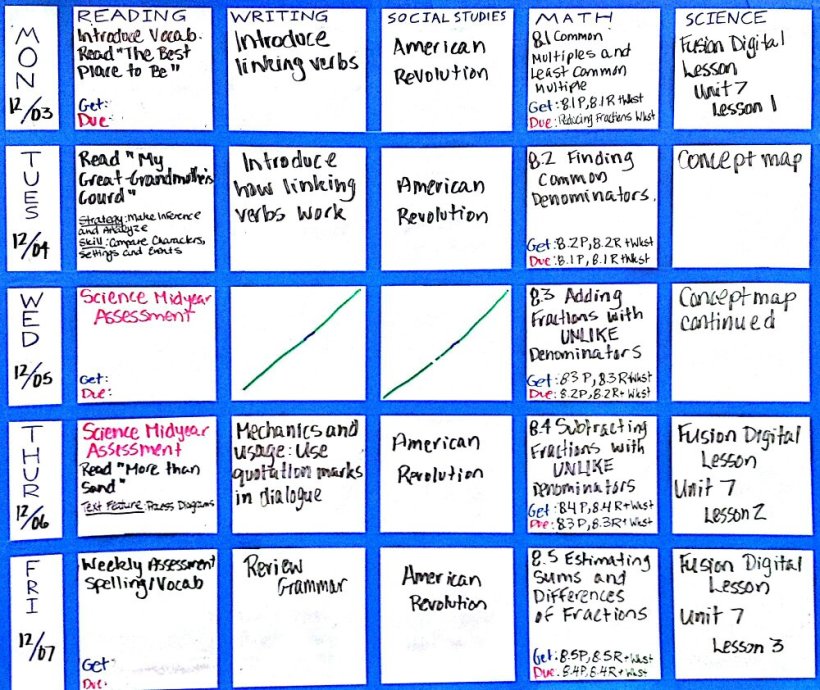 READING
WRITING
SOCIAL STUDIES
MATH
SCIENCE
MON
12/03
Introduce Vocab.
Read "The Best
Place to Be"
Get:
Due:
Introduce
linking verbs
American
Revolution
8.1 Common
Multiples and
Least Common
Multiple
Get: 8.1P, 8.1R +Wkst
Due: Reducing Fractions Wkst
Fusion Digital
Lesson
Unit 7
Lesson 1
TUES
12/04
Read "My
Great-Grandmother's
Gourd"
Strategy: Make Inference
and Analyze
Skill: Compare Characters,
Settings and Events
Introduce
how linking
verbs work
American
Revolution
8.2 Finding
Common
Denominators.
Get: 8.2P, 8.2R+Wkst
Due: 8.1P, 8.1R+Wkst
Concept map
WED
12/05
Science Midyear
Assessment
Get:
Due:
8.3 Adding
Fractions with
UNLIKE
Denominators
Get: 8.3P, 8.3R+Wkst
Due: 8.2P, 8.2R+Wkst
Concept map
continued
THUR
12/06
Science Midyear
Assessment
Read "More than
Sand"
Text Feature: Process Diagrams
Mechanics and
usage: Use
quotation marks
in dialogue
American
Revolution
8.4 Subtracting
Fractions with
UNLIKE
Denominators
Get: 8.4P, 8.4R+Wkst
Due: 8.3P, 8.3R+Wkst
Fusion Digital
Lesson
Unit 7
Lesson 2
FRI
12/07
Weekly Assessment
Spelling/Vocab
Get:
Due:
Review
Grammar
American
Revolution
8.5 Estimating
Sums and
Differences
of Fractions
Get: 8.5P, 8.5R+Wkst
Due: 8.4P, 8.4R+Wkst
Fusion Digital
Lesson
Unit 7
Lesson 3